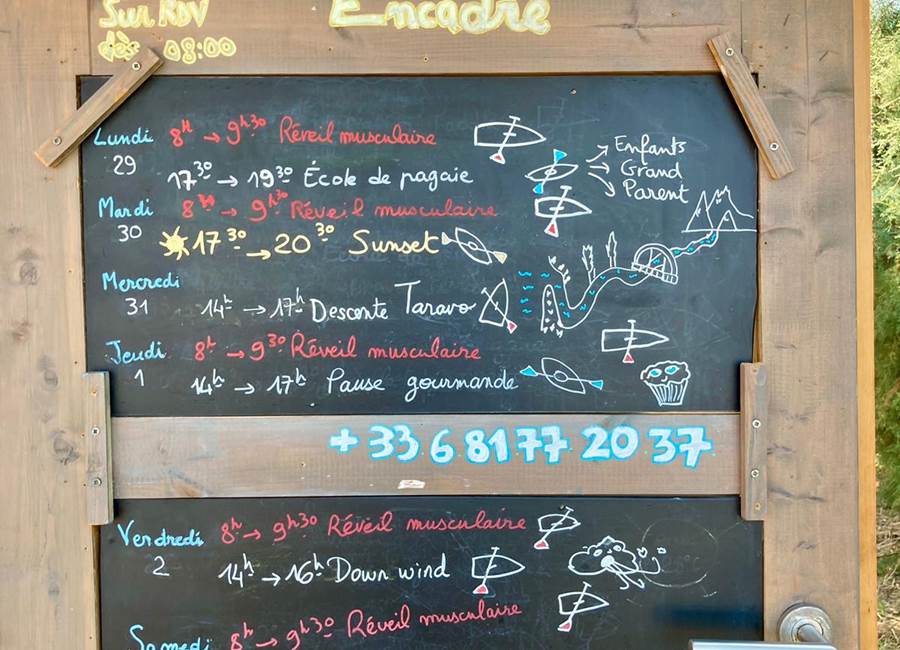 Sur RDV
dès 08:00
Encadré
Lundi 8h → 9h30 Réveil musculaire
29
17 30 → 19 30 École de pagaie
Enfants
Grand
Parent
Mardi 8h → 9h30 Réveil musculaire
30
17 30 → 20 30 Sunset
Mercredi
31 14h → 17h Descente Taravo
Jeudi 8h → 9 30 Réveil musculaire
1 14h → 17h Pause gourmande
+ 33 6 81 77 20 37
Vendredi 8h → 9h30 Réveil musculaire
2 14h → 16h Down wind
Samedi 8h → 9h30 Réveil musculaire